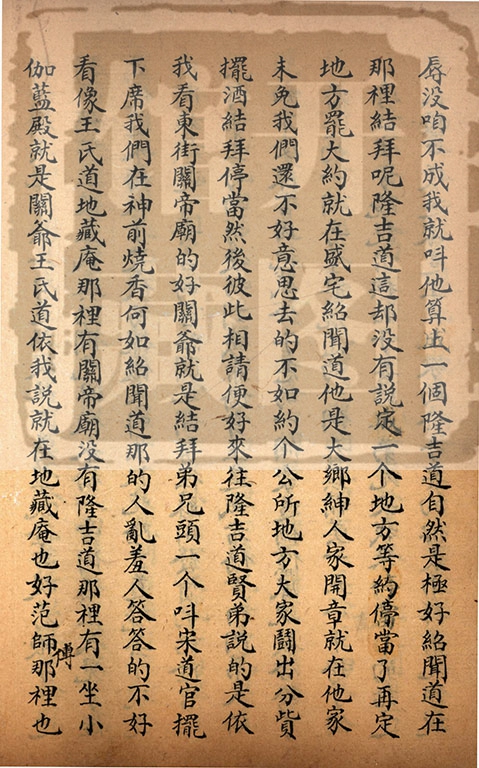 辱没咱不成我就呌他算上一個隆吉道自然是極好紹聞道在
那裡結拜呢隆吉道這却没有說定一个地方等約停當了再定
地方罷大約就在盛宅紹聞道他是大鄉紳人家開章就在他家
未免我們還不好意思去的不如約个公所地方大家鬪出分貲
擺酒結拜停當然後彼此相請便好來往隆吉道賢弟說的是依
我看東街關帝廟的好關爺就是結拜弟兄頭一个呌宋道官擺
下席我們在神前燒香何如紹聞道那的人亂羞人答答的不好
看像王氏道地藏庵那裡有關帝廟没有隆吉道那裡有一坐小
伽藍殿就是關爺王氏道依我說就在地藏庵也好范師傅那裡也